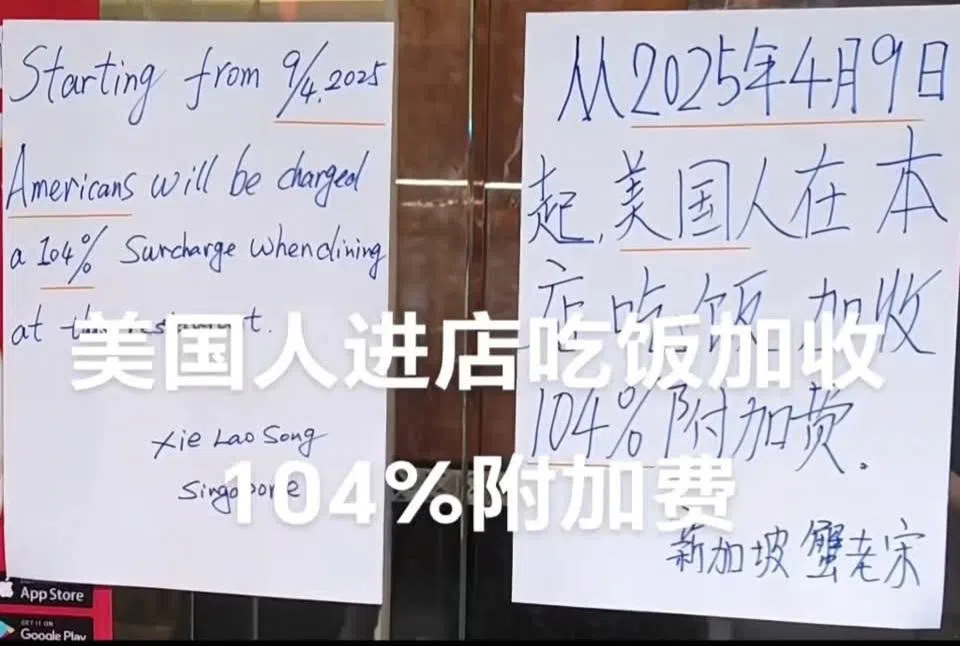 Starting from 9/4.2025
Americans will be charged
a 104% Surcharge when dining
at this restaurant.
Xie Lao Song
Singapore
从2025年4月9日
起,美国人在本
店吃饭加收
104%附加费.
新加坡 蟹老宋
美国人进店吃饭加收
104%附加费
App Store
GET IT ON
Google Play